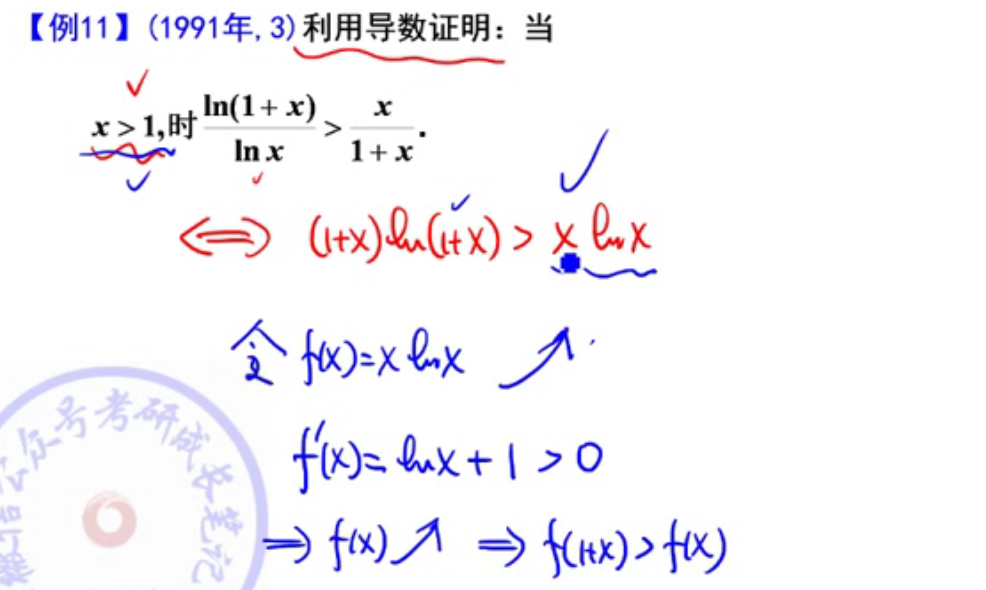 【例11】(1991年,3)利用导数证明：当
x > 1,时 ln(1+x)/ln x > x/(1+x).
⟺ (1+x)ln(1+x) > x ln x
令 f(x)=x ln x ↗
f'(x)=lnx+1>0
⇒ f(x)↗ ⇒ f(1+x)>f(x)
公众号考研成长笔记